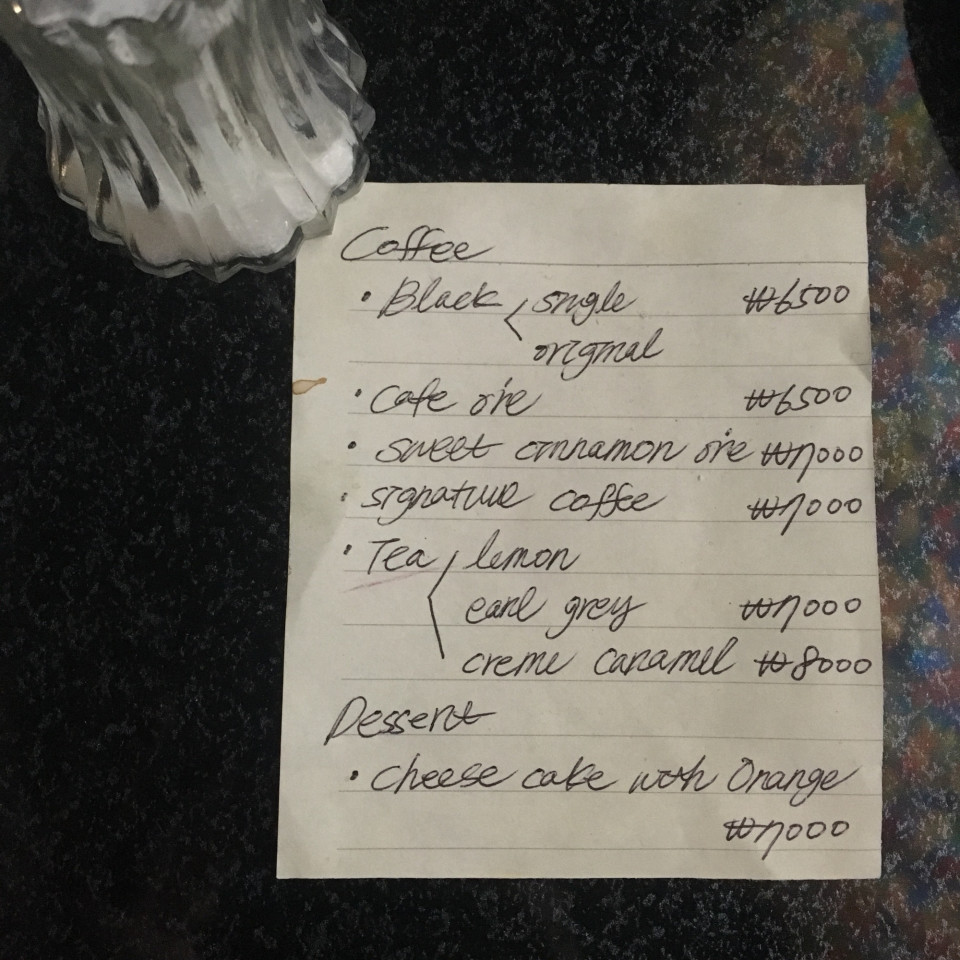 Coffee
• Black < single ₩6500
original
• Cafe ole ₩6500
• sweet cinnamon ole ₩7000
• signature coffee ₩7000
• Tea lemon
earl grey ₩7000
creme caramel ₩8000
Dessert
• cheese cake with Orange
₩7000